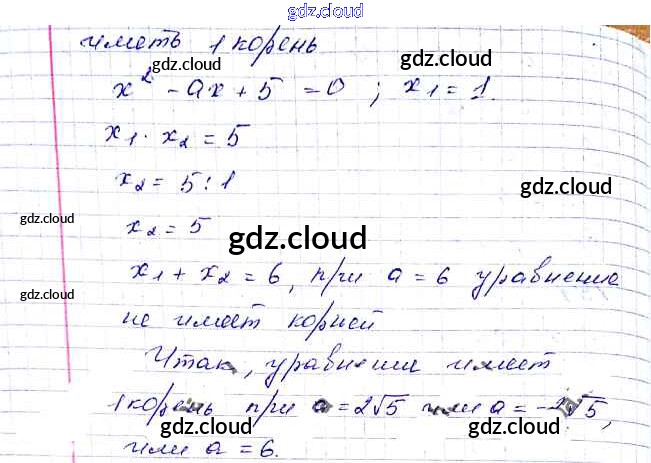 gdz.cloud
иметь 1 корень
gdz.cloud
gdz.cloud
x² - ax + 5 = 0 ; x₁ = 1.
x₁ · x₂ = 5
x₂ = 5 : 1
gdz.cloud
x₂ = 5
gdz.cloud
gdz.cloud
x₁ + x₂ = 6, при a = 6 уравнение
gdz.cloud
не имеет корней
Итак, уравнении имеет
1 корень при a = 2√5 или a = -2√5,
gdz.cloud
gdz.cloud
gdz.cloud
или a = 6.